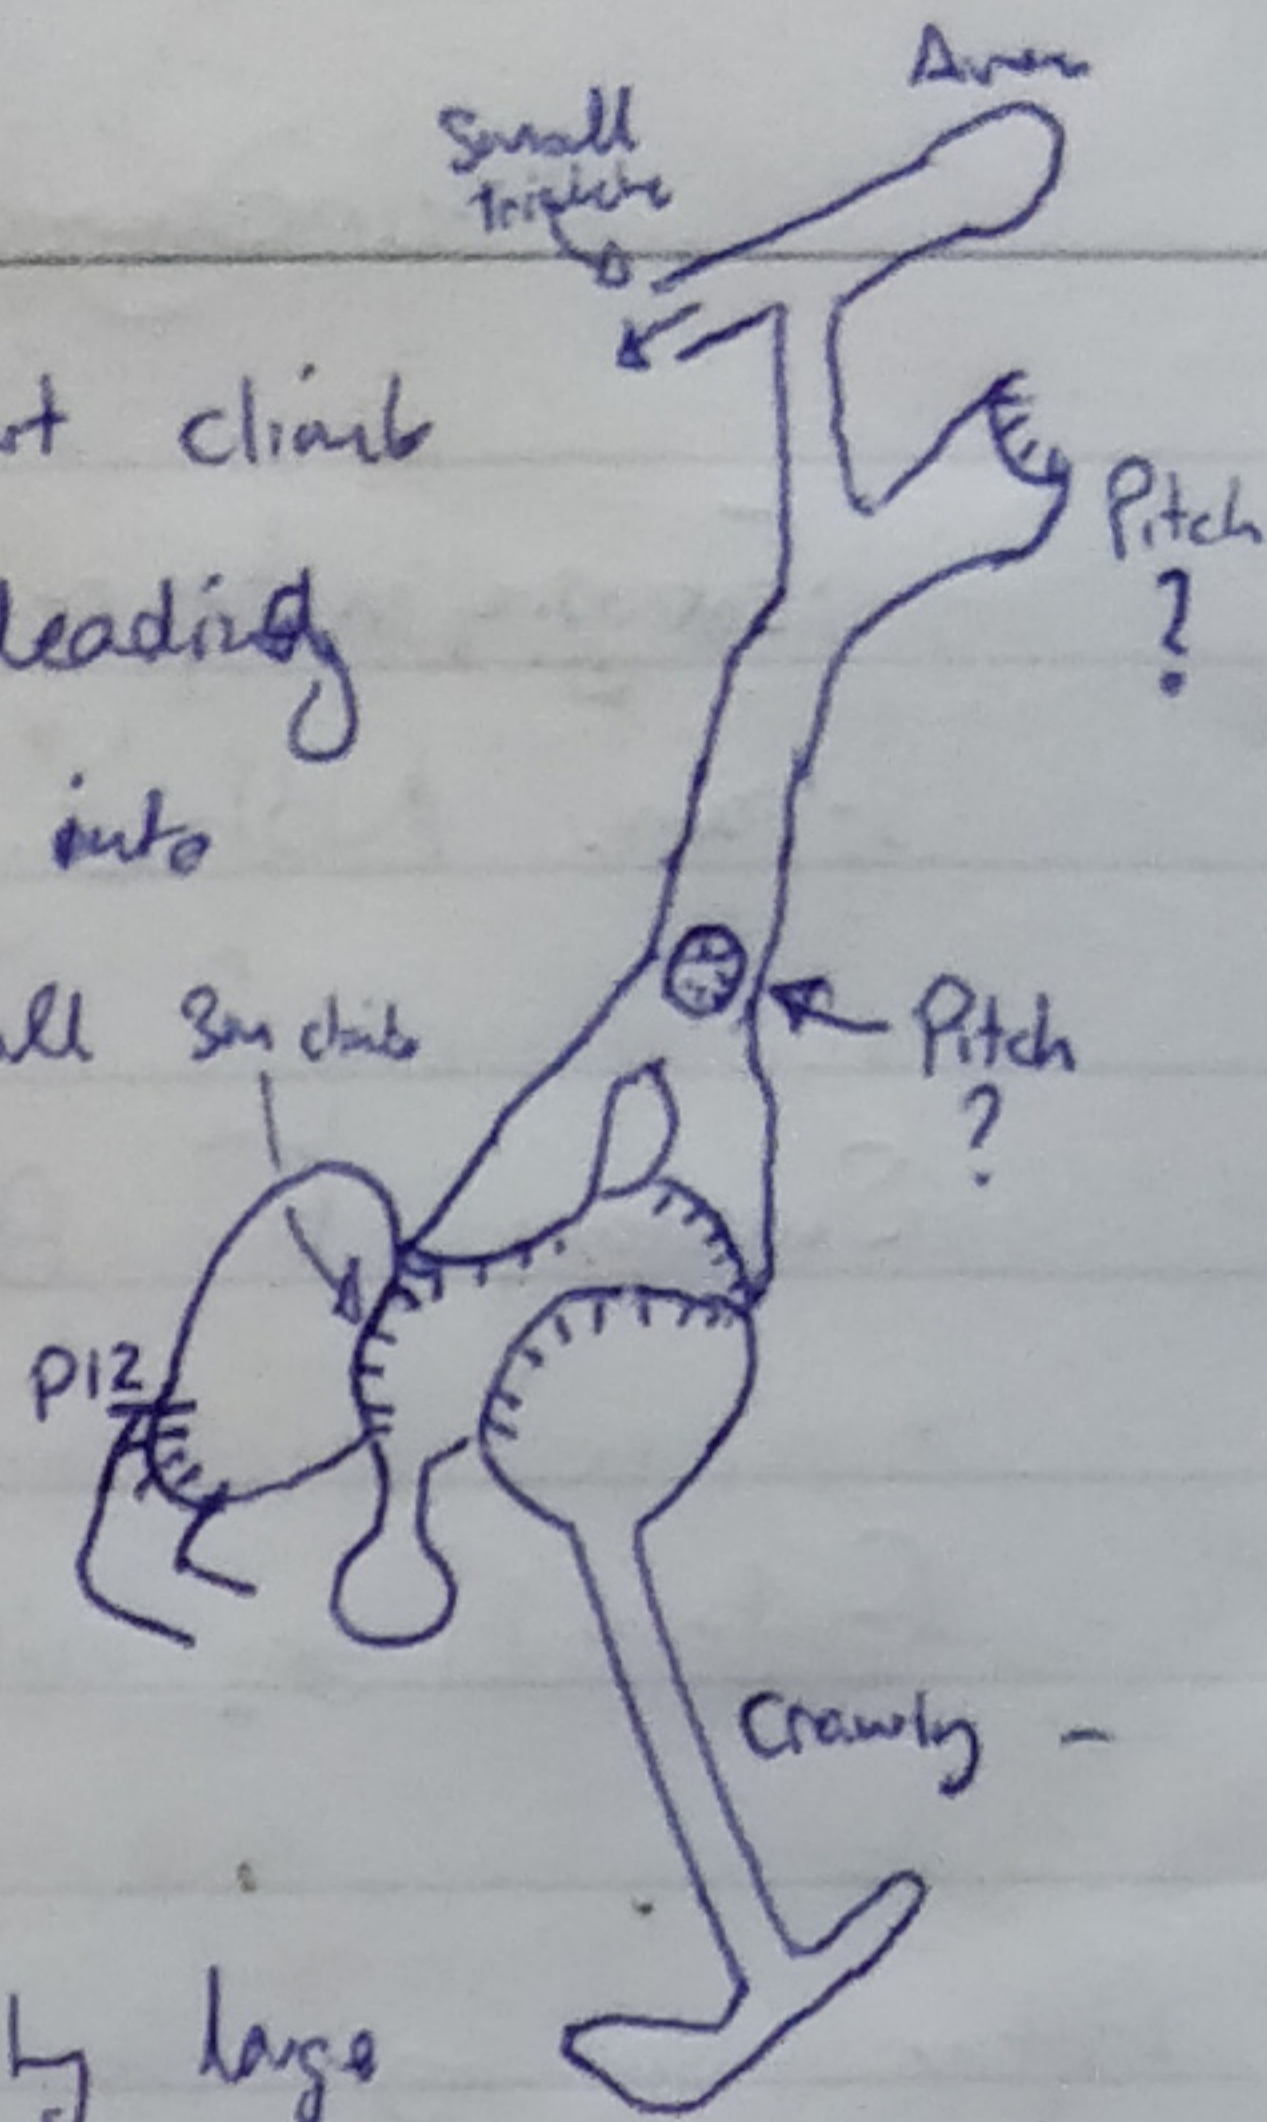 Aven
Small
trickle
climb
Pitch
?
leading
into
3m climb
Pitch
?
P12
Crawly -
large